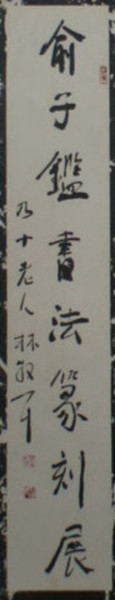 俞子鑑書法篆刻展
九十老人林散之